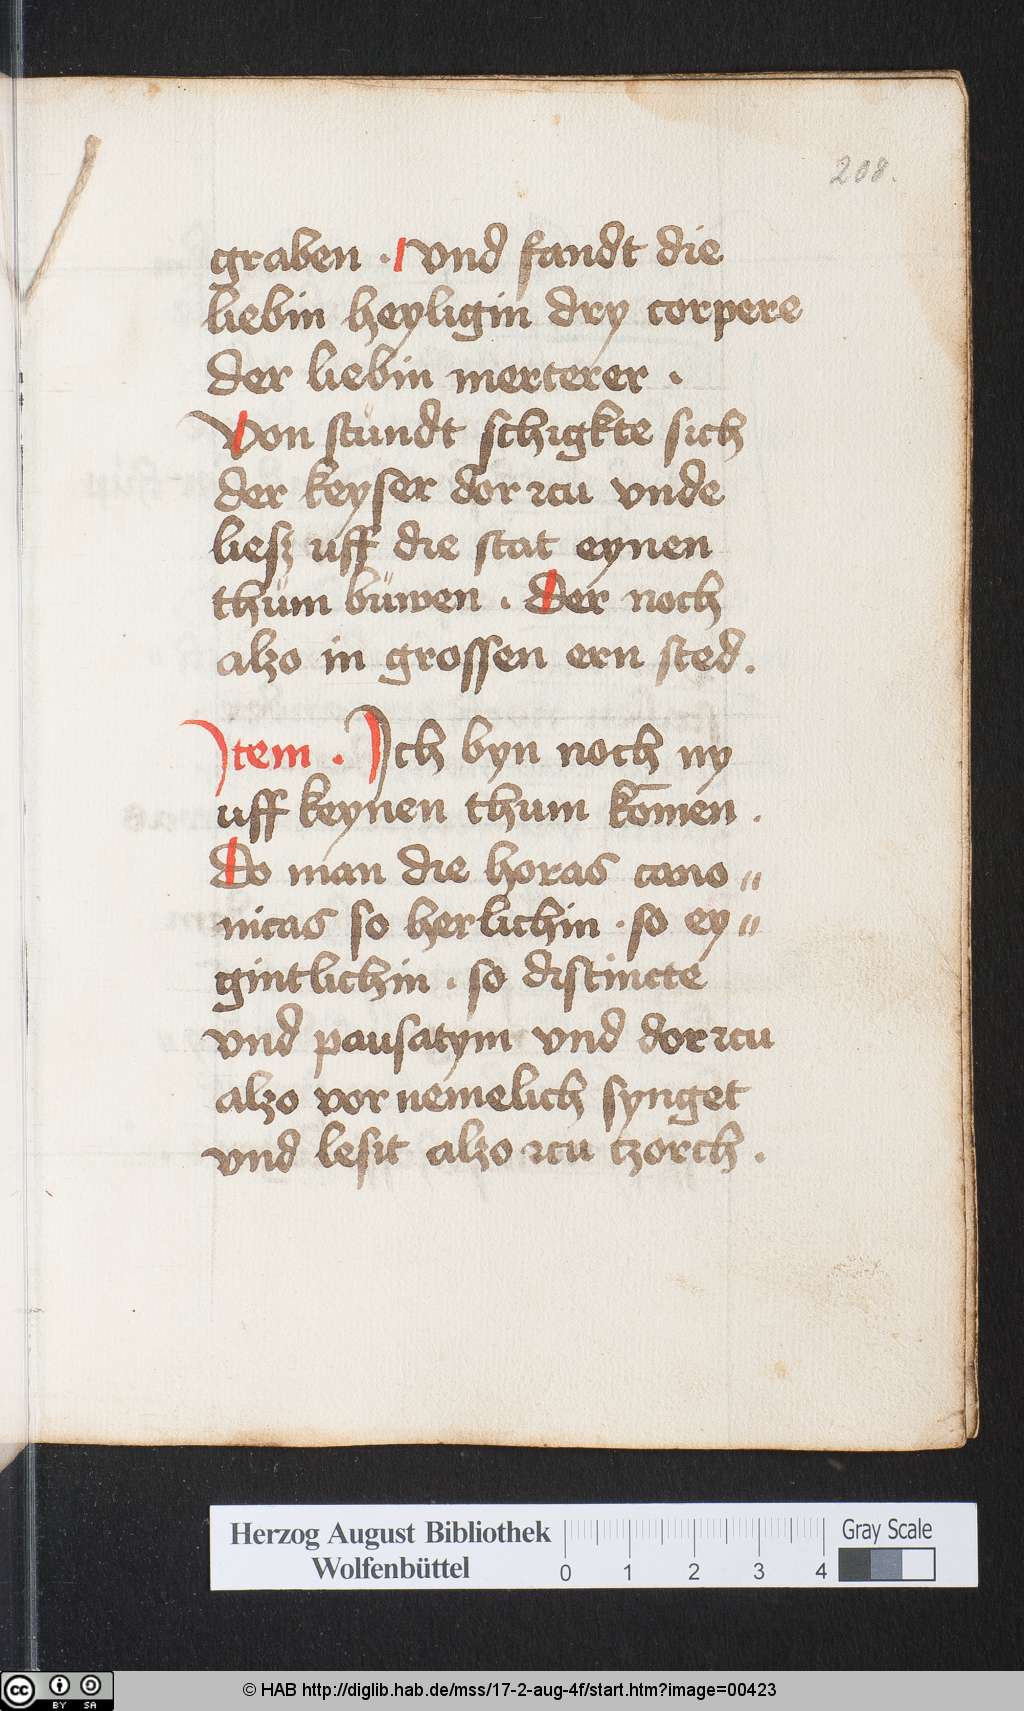 208.
graben . vnd fandt die
liebin heyligin dry corpere
der liebin merterer .
Von stündt schigkte sich
der keyser dor zcu vnde
liesz uff die stat eynen
thüm büwen . Der noch
alzo in grossen ern sted .
Item . Ich byn noch ny
uff keynen thum kōmen .
Do man die horas cano〃
nicas so herlichin . so ey〃
gintlichin . so distincte
vnd pausatym vnd dor zcu
alzo vor nemelich synget
vnd lesit alzo zcu tzorch .
Herzog August Bibliothek
Wolfenbüttel
0 1 2 3 4
Gray Scale
cc BY SA
© HAB http://diglib.hab.de/mss/17-2-aug-4f/start.htm?image=00423